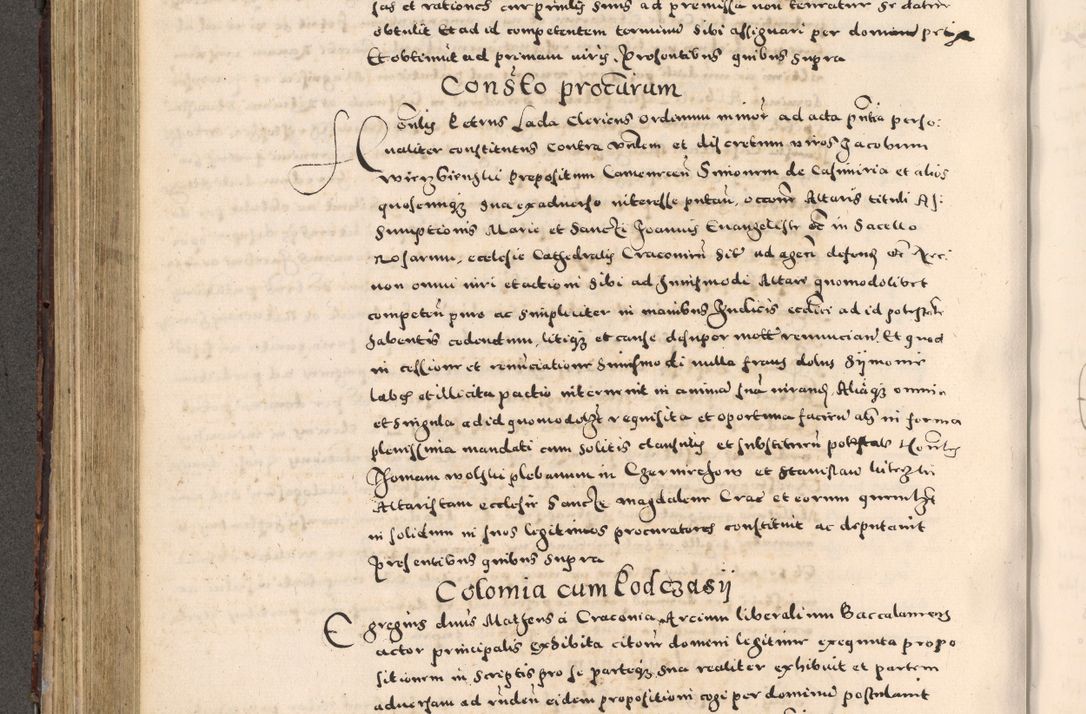 sas et rationes cur primis suis ad premissa non teneatur se datur
obtulit Et ad id competentem terminu sibi assignari per dominum petiit
Et obtinuit ad primam iuris. Presentibus quibus supra
Constco procuraum
Honlis Petrus Lada Clericus Ordinum minor ad acta pntia perso:
naliter constitutus Contra venlem et discretum viros Jacobum
Wierzbienski Prepositum Camenecen Simonem de Casimiria et alios
quoscumqz sua ex adverso interesse putan. occone Altaris tituli As:
sumptionis Marie et Sancti Joannis Evangeliste etc in Sacello
Rosarum, ecclesie Cathedralis Cracovien site ad agen defendn etc Nec
non omni iuri et actioni sibi ad huiusmodi Altare quomodolibet
competen pure ac simpliciter in manibus Judicis ecclici ad id potestate
habentis cedendum, litiqz et cause desuper mote renuncian. Et quod
in cessione et renuciatione huiusmodi nulla fraus dolus Symonie
labes et illicita pactio intervenit in anima sua iurand. Aliaqz omnia
et singula ad id quomodolzt requisita et oportuna facien als in forma
plenissima mandati cum solitis clausulis et substituen potestate Honlis
Thomam Wolski plebanum in Czermirzow et Stanislaum
Altaristam ecclesie Sancte Magdalene Crac et eorum quemlzt
in solidum in suos legitimos procuratores constituit ac deputavit
Presentibus quibus supra
Colomia cum Kodczasij
Egregius dnus Matheus a Craconia Arcium liberalium Baccalaureus
actor principalis exhibita citone domeni legitime exequuta propo
sitionem in scriptis pro se parteqz sua realiter exhibuit et partem
adversam ad rnden eidem propositioni cogi per dominum postulavit